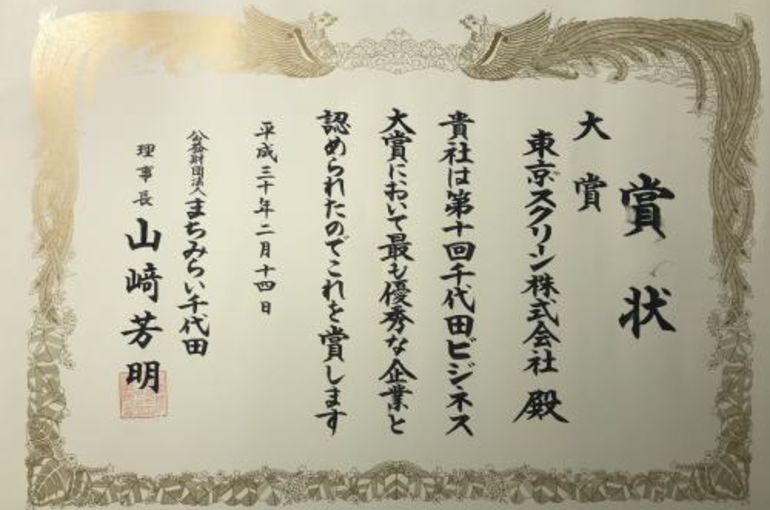 賞状
大賞
東京スクリーン株式会社 殿
貴社は第十回千代田ビジネス
大賞において最も優秀な企業と
認められたのでこれを賞します
平成三十年二月十四日
公益財団法人まちみらい千代田
理事長 山﨑芳明